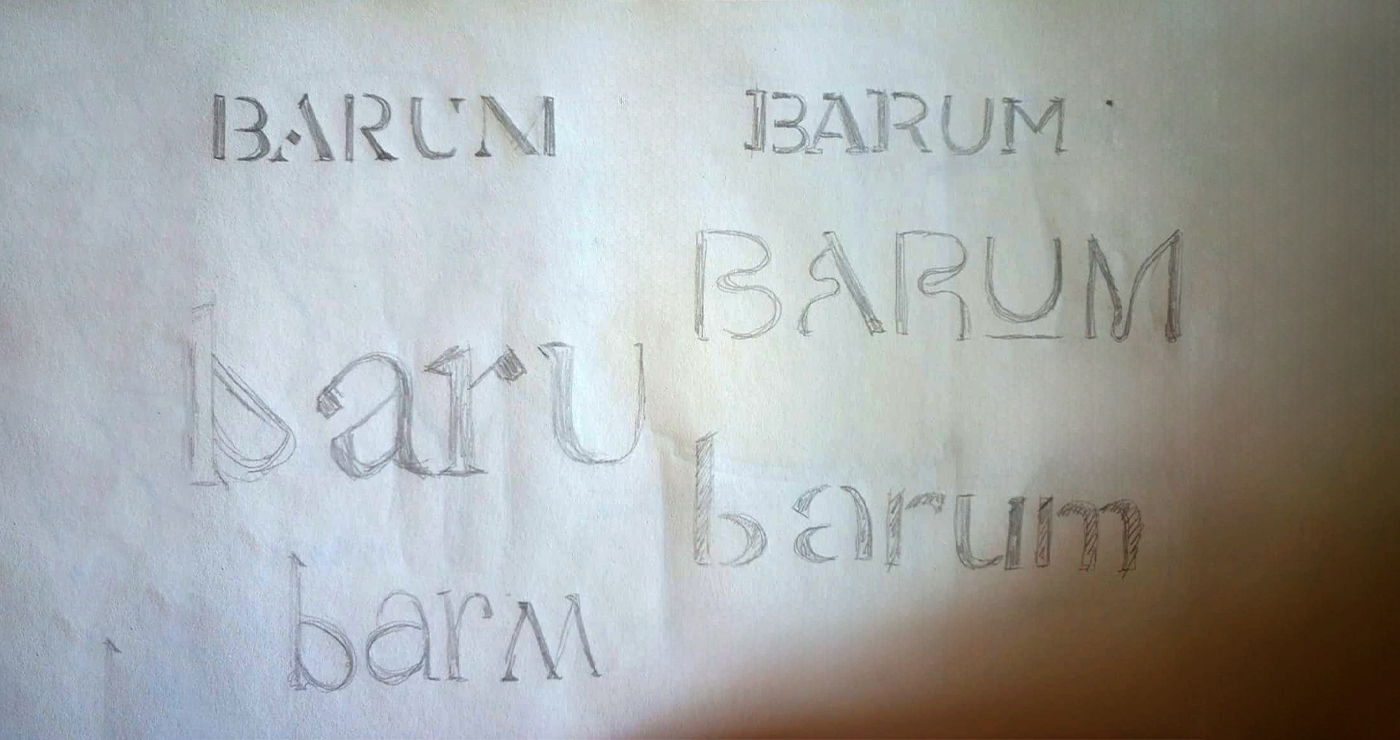 BARUM
BARUM
BARUM
baru
barum
barm